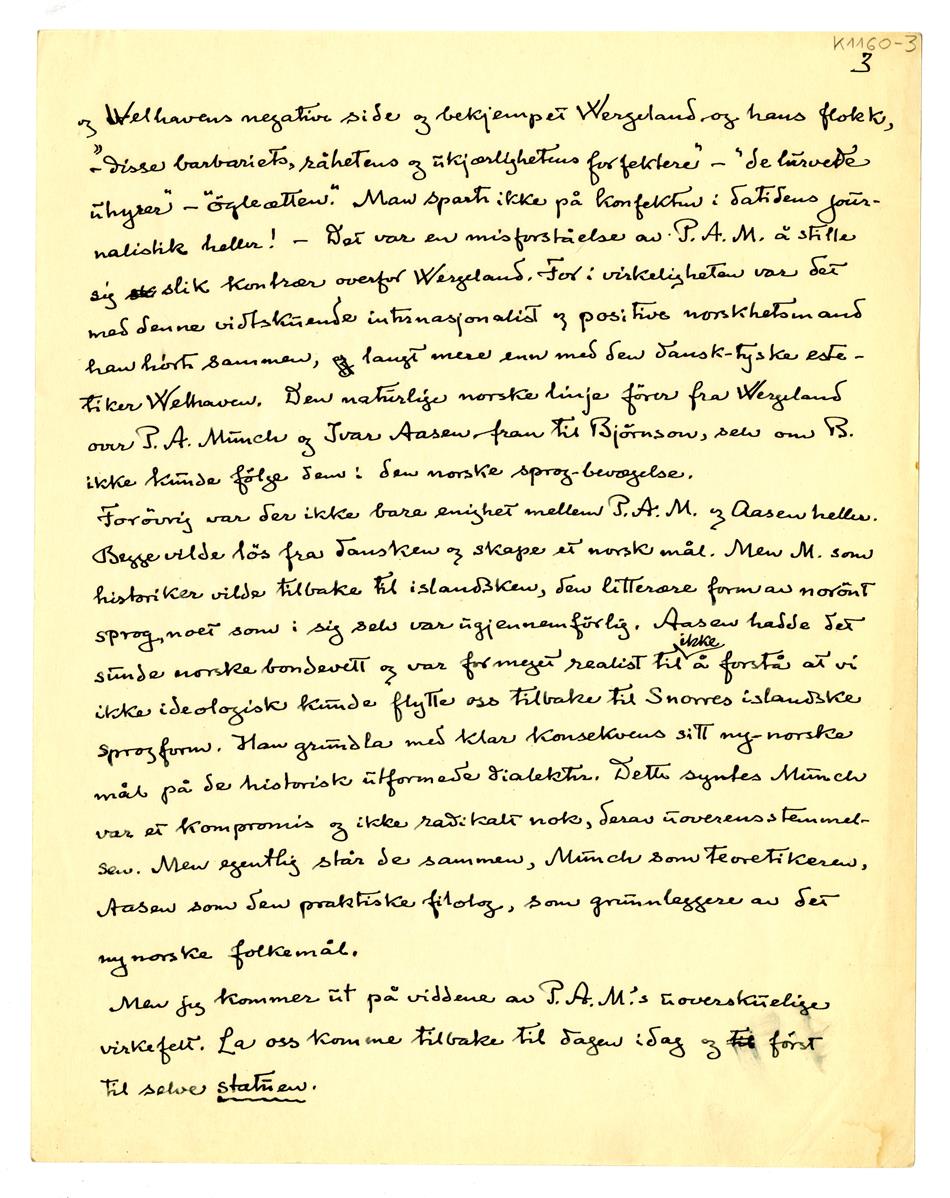 K1160-3
3
og Welhavens negative side og bekjempet Wergeland og hans flokk,
- "disse barbariets, råhetens og ukjærlighetens forfektere" - "de lurvede
uhyrer" - "ögleætten". Man sparte ikke på konfekten i datidens jour-
nalistik heller! - Det var en misforståelse av P. A. M. å stille
sig slik kontrær overfor Wergeland. For i virkeligheten var det
med denne vidtskuende internasjonalist og positive norskhetsmand
han hørte sammen, og langt mere enn med den dansk-tyske este-
tiker Welhaven. Den naturlige norske linje förer fra Wergeland
over P. A. Munch og Ivar Aasen fram til Björnson, selv om B.
ikke kunde fölge dem i den norske sprog-bevægelse.
Forövrig var der ikke bare enighet mellem P. A. M. og Aasen heller.
Begge vilde lös fra dansken og skape et norsk mål. Men M. som
historiker vilde tilbake til islandsken, den litterære form av norönt
sprog, noet som i sig selv var ugjennemförlig. Aasen hadde det
sunde norske bondevett og var for meget realist til ikke å forstå at vi
ikke ideologisk kunde flytte oss tilbake til Snorres islandske
sprogform. Han grundla med klar konsekvens sitt ny-norske
mål på de historisk utformede dialekter. Dette syntes Munch
var et kompromis og ikke radikalt nok, derav uoverensstemmel-
sen. Men egentlig står de sammen, Munch som teoretikeren,
Aasen som den praktiske filolog, som grunnleggere av det
nynorske folkemål.
Men jeg kommer ut på viddene av P. A. M.'s uoverskuelige
virkefelt. La oss komme tilbake til dagen idag og til först
til selve statuen.